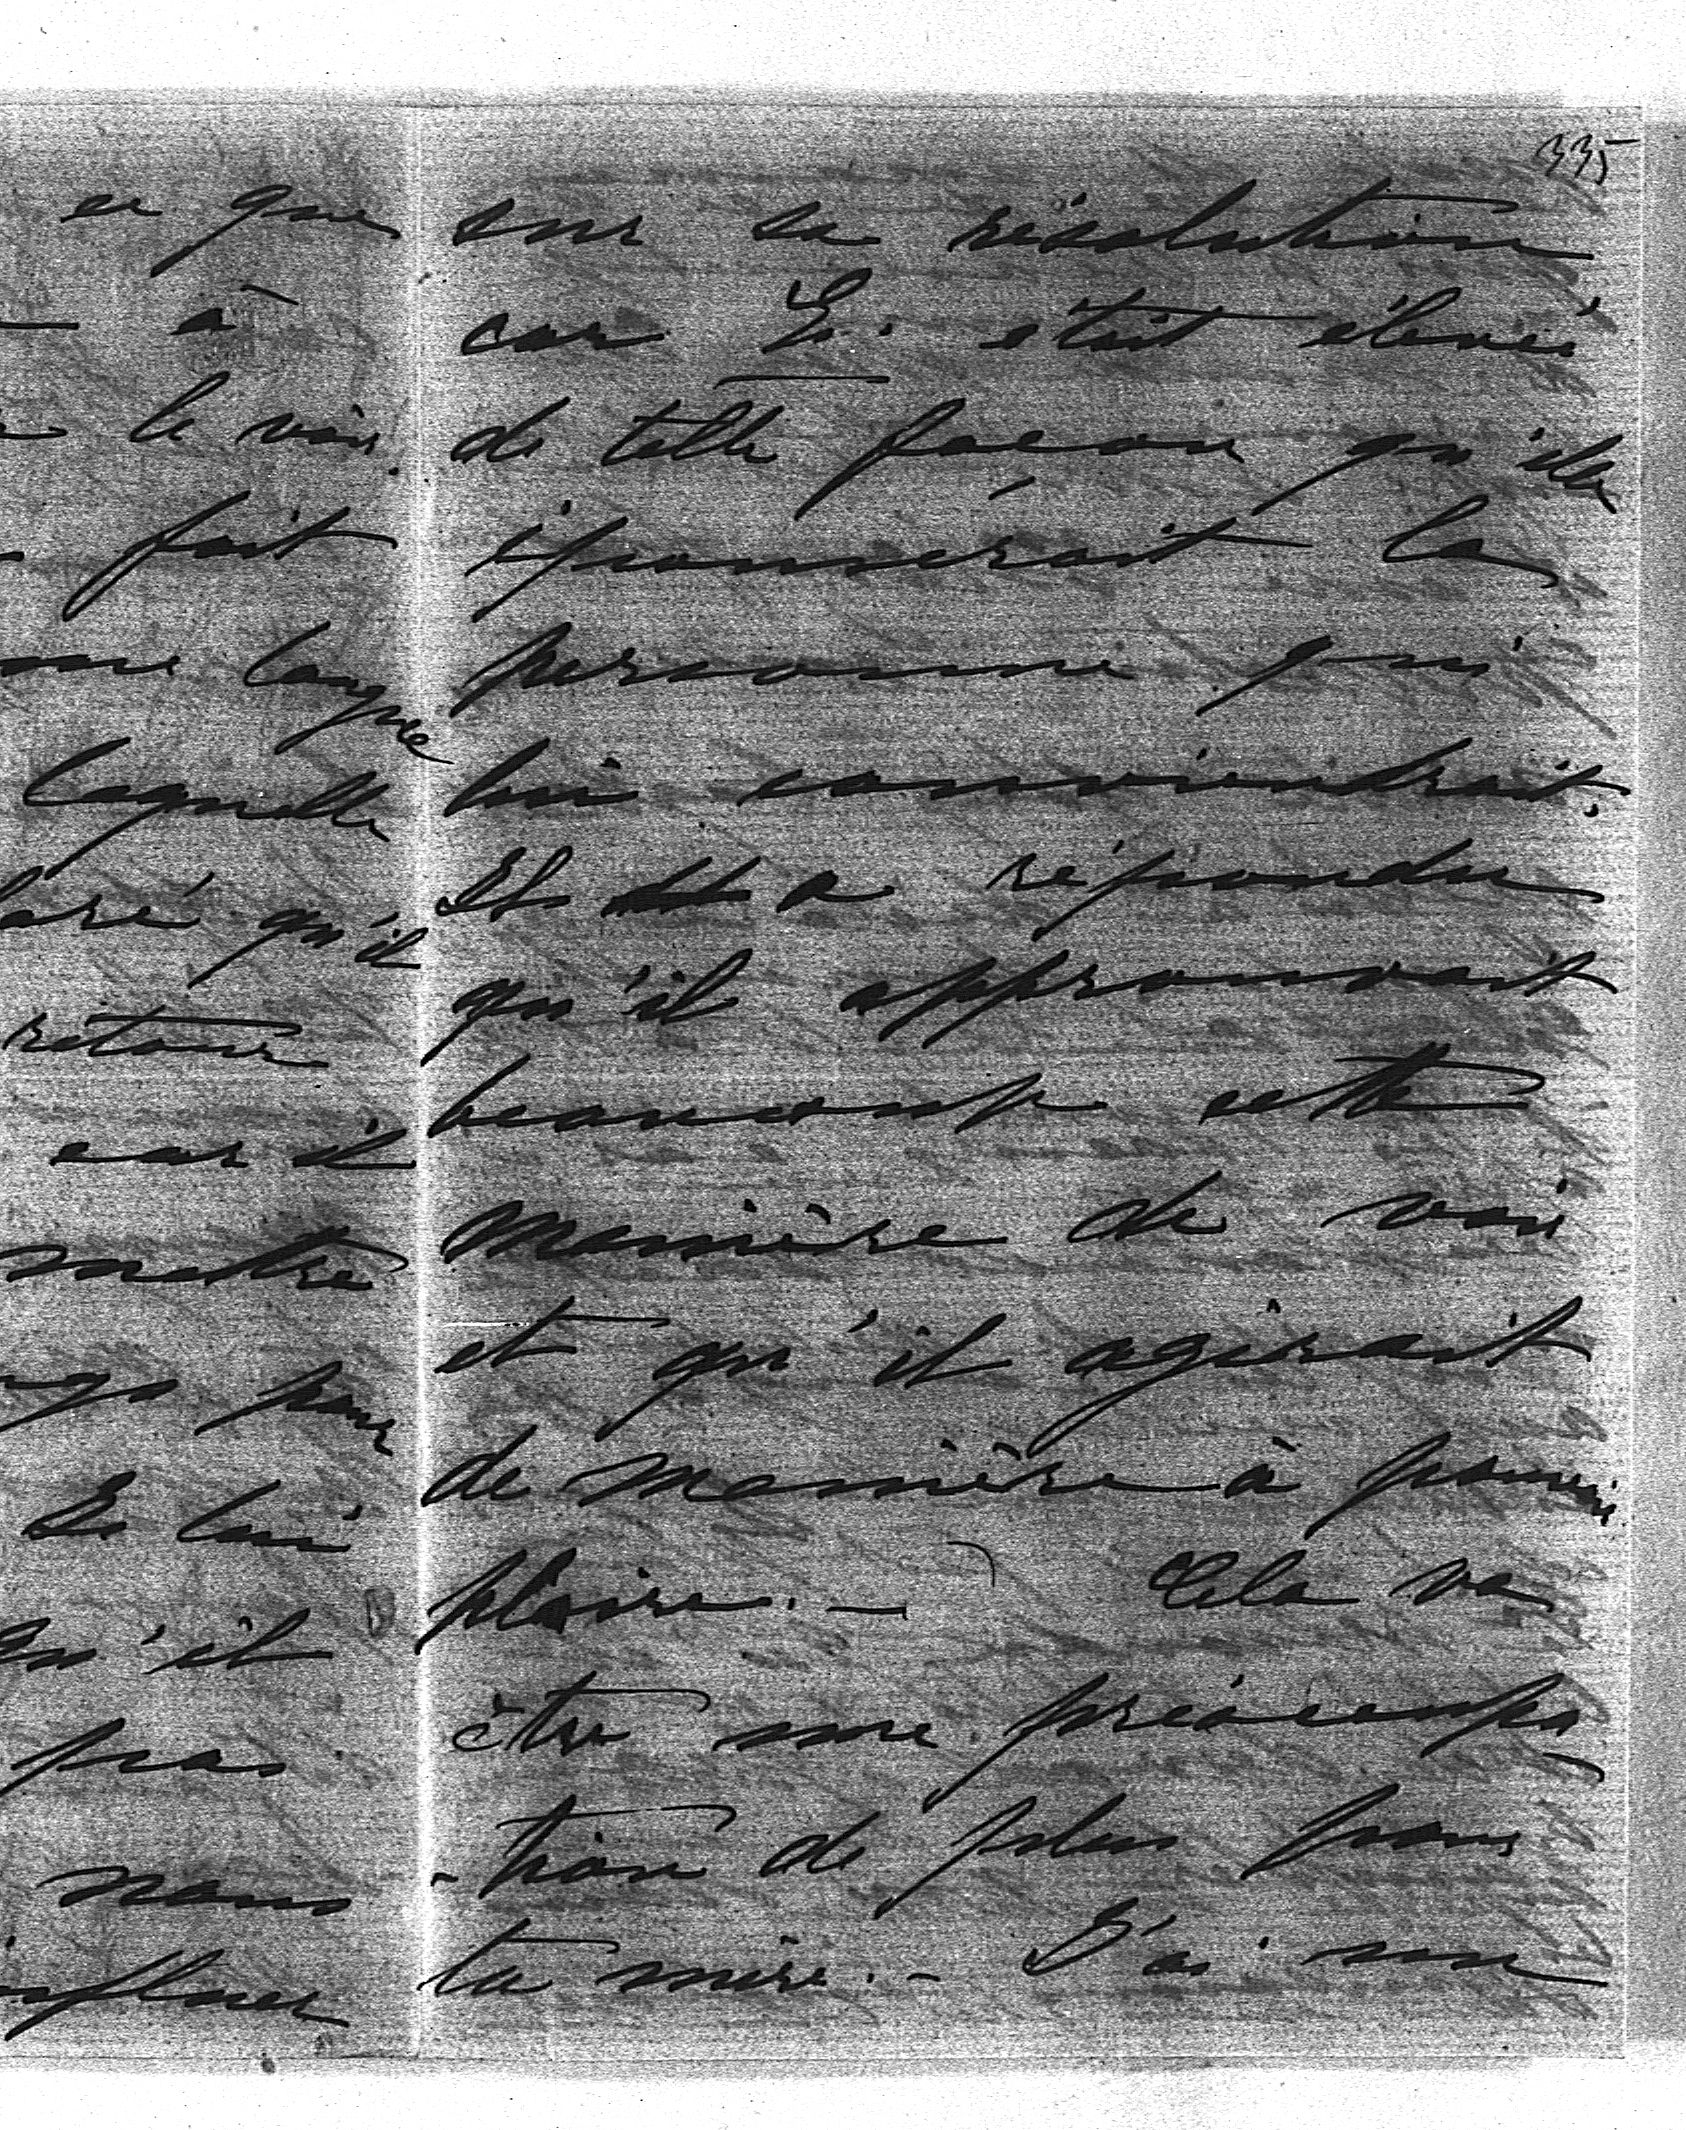 335
ce que
à
le voir.
fait
longue
laquelle
qu'il
retour
car il
mettre
pour
lui
qu'il
pas
nous
influer
sur sa résolution
car était élevée
de telle façon qu'elle
épouserait la
personne qui
lui conviendrait.
Et a répondu
qu'il approuvait
beaucoup cette
manière de voir
et qu'il agirait
de manière à pouvoir
plaire. — Cela va
être une préoccupa
-tion de plus pour
ta mère. - J'ai une